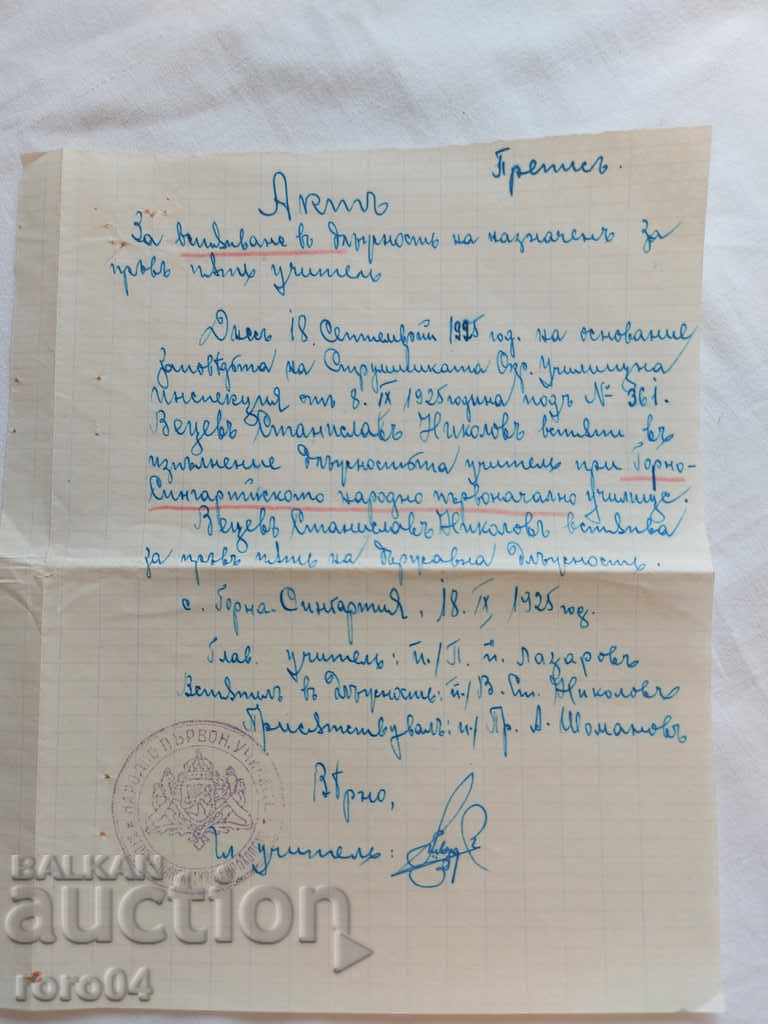 Преписъ.
Актъ
За встѫпване въ длъжность на назначенъ за
пръвъ пѫть учитель
Днесъ 18 Септемврий 1925 год. на основание
заповѣдьта на Струмишката Окр. Училищна
инспекция отъ 8. IX 1925 година подъ № 361.
Вецевъ Станиславъ Николовъ встѫпи въ
изпълнение длъжностьта учитель при Горно-
Сингартийското народно първоначално училище.
Вецевъ Станиславъ Николовъ встѫпва
за пръвъ пѫть на държавна длъжность.
с. Горна-Сингартия, 18. IX 1925 год.
Глав. учитель: п./ П. п. Лазаровъ
Встѫпилъ въ длъжность: п/ В. Ст. Николовъ
Присѫтствувалъ: п/ Пр. А. Шомановъ
Вѣрно,
Гл. учитель:
НАРОДНО ПЪРВОН. УЧИЛИЩЕ
BALKAN
auction
roro04